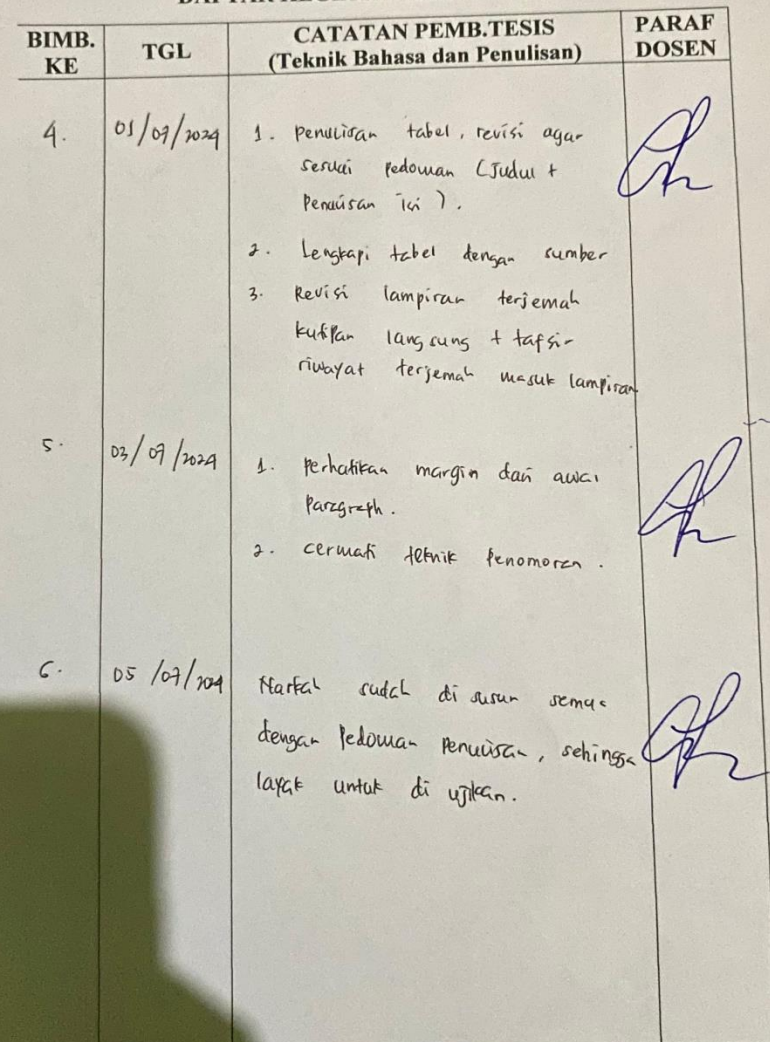 BIMB. KE
TGL
CATATAN PEMB.TESIS
(Teknik Bahasa dan Penulisan)
PARAF DOSEN
4.
01/07/2024
1. Penulisan tabel, revisi agar
sesuai pedoman (Judul +
Penulisan isi ).
2. Lengkapi tabel dengan sumber
3. Revisi lampiran terjemah
kutipan langsung + tafsir
riwayat terjemah masuk lampiran
5.
03/07/2024
1. Perhatikan margin dari awal
Paragraph.
2. cermati teknik Penomoran.
6.
05/07/2024
Naskah sudah di susun semua
dengan Pedoman Penulisan, sehingga
layak untuk di ujikan.